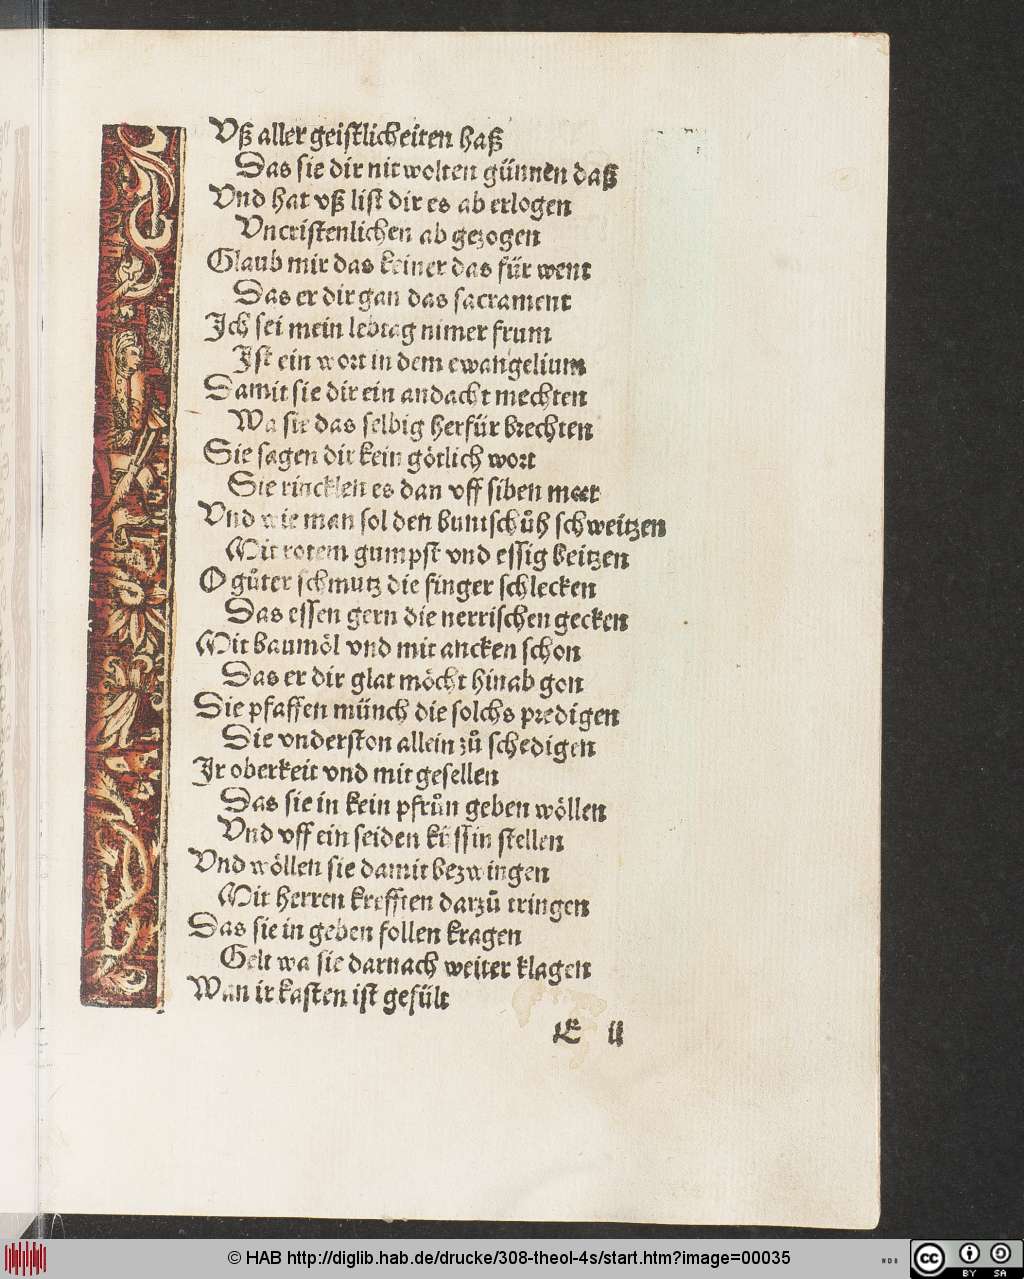 Vß aller geistlicheiten haß
Das sie dir nit wolten günnen daß
Vnd hat vß list dir es ab erlogen
Vncristenlichen ab gezogen
Glaub mir das keiner das für went
Das er dir gan das sacrament
Ich sei mein lebtag nimer frum
Ist ein wort in dem ewangelium
Damit sie dir ein andacht mechten
Wa sie das selbig herfür brechten
Sie sagen dir kein götlich wort
Sie rincklen es dan vff siben mort
Vnd wie man sol den buntschůh schweitzen
Mit rotem gumpst vnd essig beitzen
O gůter schmutz die finger schlecken
Das essen gern die nerrischen gecken
Mit baumöl vnd mit ancken schon
Das er dir glat möcht hinab gon
Die pfaffen münch die solchs predigen
Die vnderston allein zů schedigen
Ir oberkeit vnd mit gesellen
Das sie in kein pfrůn geben wöllen
Vnd vff ein seiden küssin stellen
Vnd wöllen sie damit bezwingen
Mit herren krefften darzů tringen
Das sie in geben follen kragen
Gelt wa sie darnach weiter klagen
Wan ir kasten ist gefült
E ij
© HAB http://diglib.hab.de/drucke/308-theol-4s/start.htm?image=00035
WDB
cc BY SA